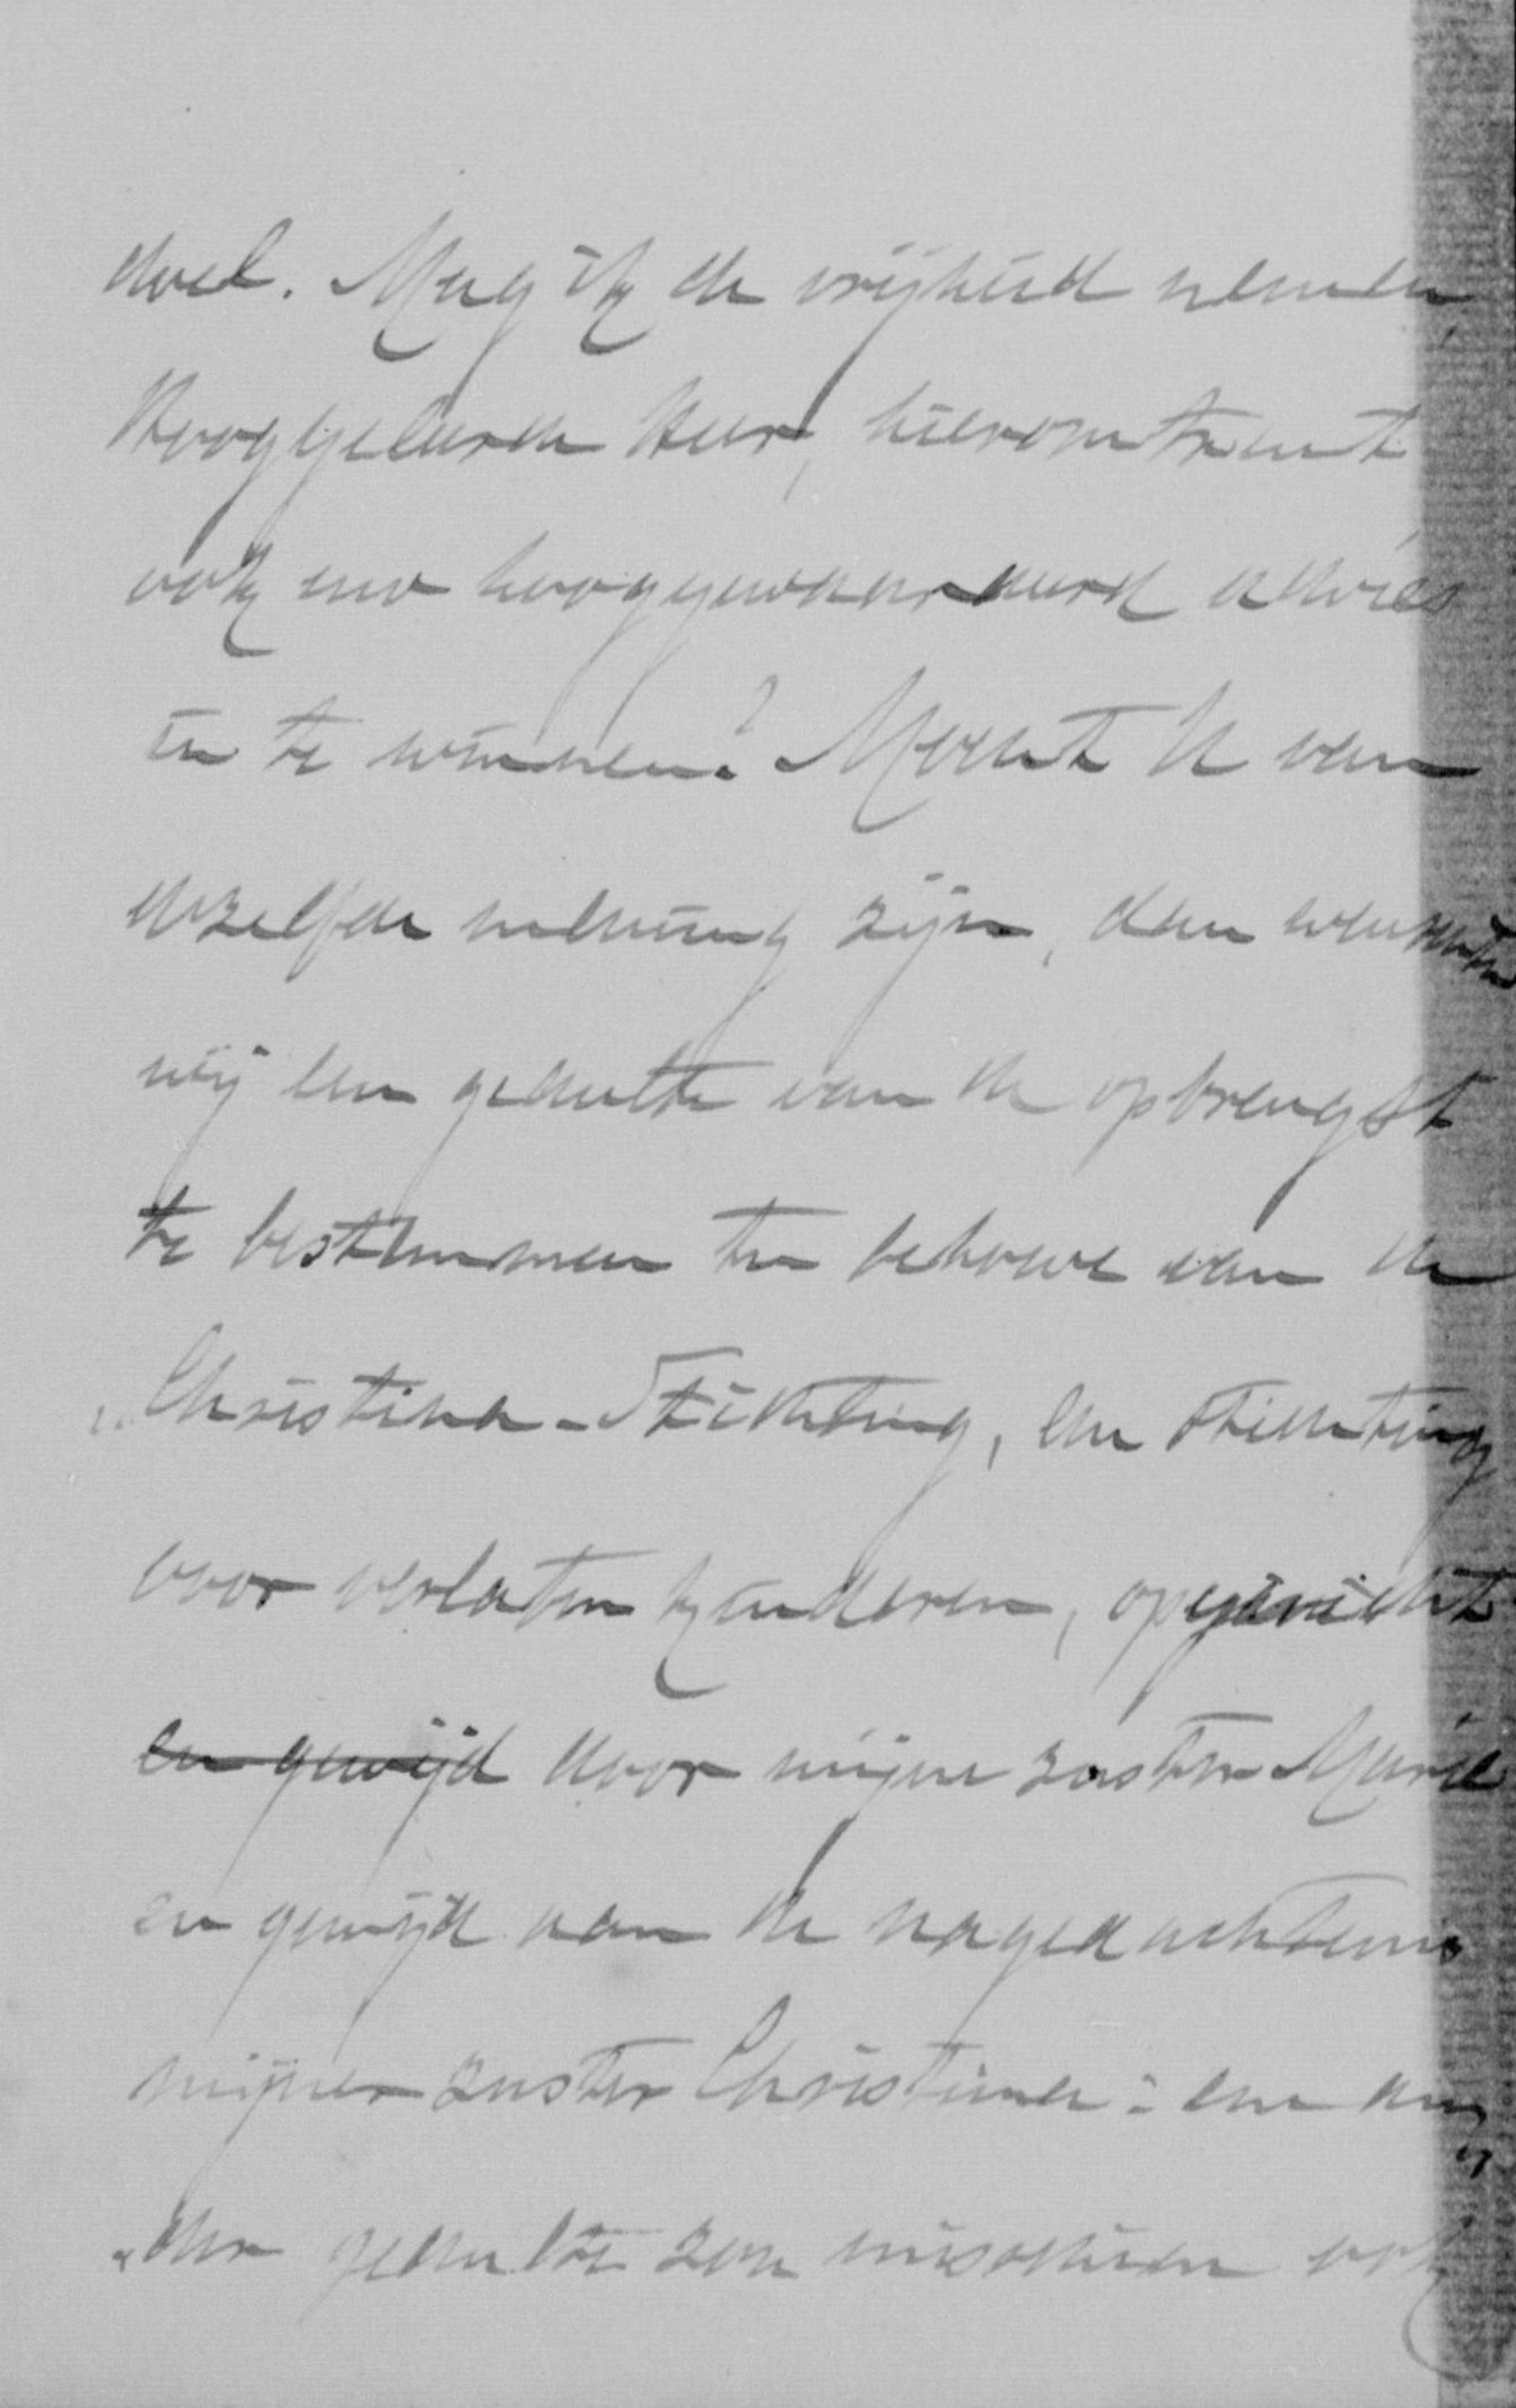 doel. Mag ik de vrijheid nemen,
Hooggeleerde Heer, hieromtrent
ook uw hooggewaardeerd advies
in te winnen? Mocht U van
dezelfde mening zijn, dan wenschten
wij een gedeelte van de opbrengst
te bestemmen ten behoeve van de
„Christina-Stichting, een stichting
voor verlaten kinderen, opgericht
en gewijd door mijne zuster Marie
en gewijd aan de nagedachtenis
mijner zuster Christina: een an
„der gedeelte zou misschien ook